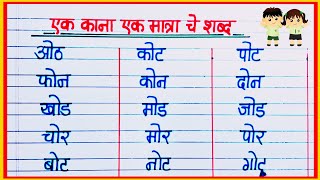 एक काना एक मात्रा चे शब्द
ओठ कोट पोट
फोन कोन दोन
खोड मोड जोड
चोर मोर पोर
बोट नोट गोट